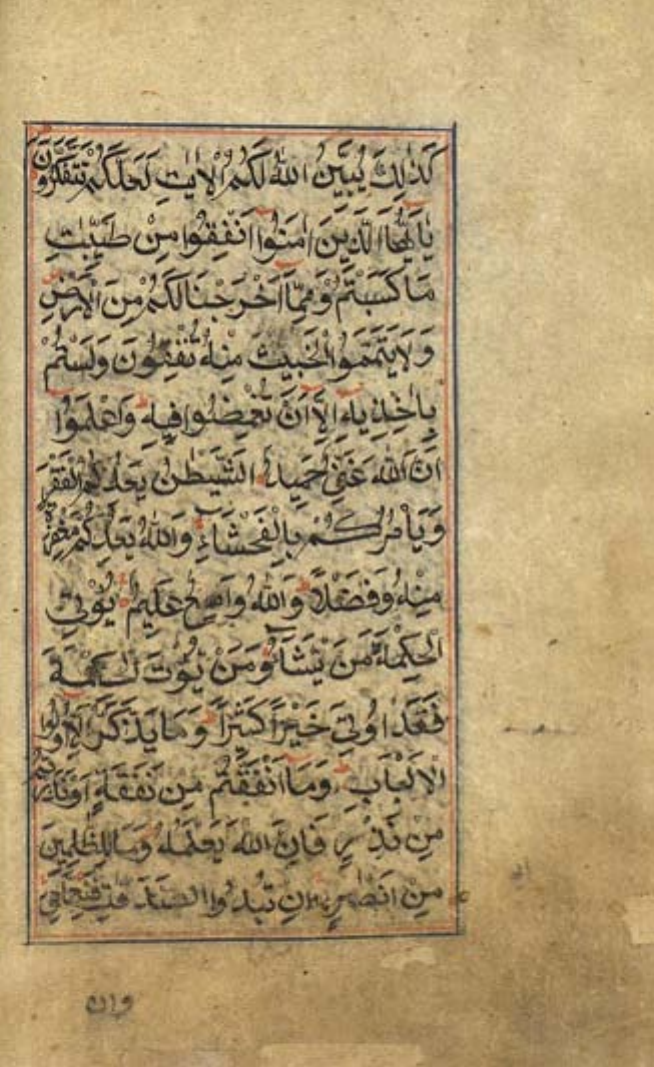 كَذٰلِكَ يُبَيِّنُ اللّٰهُ لَكُمُ الْاٰيٰتِ لَعَلَّكُمْ تَتَفَكَّرُونَ
يٰاَيُّهَا الَّذِينَ اٰمَنُوا اَنْفِقُوا مِنْ طَيِّبٰتِ
مَا كَسَبْتُمْ وَمِمَّا اَخْرَجْنَا لَكُمْ مِنَ الْاَرْضِ
وَلَا تَيَمَّمُوا الْخَبِيثَ مِنْهُ تُنْفِقُونَ وَلَسْتُمْ
بِاٰخِذِيهِ اِلَّا اَنْ تُغْمِضُوا فِيهِ وَاعْلَمُوا
اَنَّ اللّٰهَ غَنِيٌّ حَمِيدٌ اَلشَّيْطٰنُ يَعِدُكُمُ الْفَقْرَ
وَيَاْمُرُكُمْ بِالْفَحْشَاءِ وَاللّٰهُ يَعِدُكُمْ مَغْفِرَةً
مِنْهُ وَفَضْلًا وَاللّٰهُ وَاسِعٌ عَلِيمٌ يُؤْتِي
الْحِكْمَةَ مَنْ يَشَآءُ وَمَنْ يُؤْتَ الْحِكْمَةَ
فَقَدْ اُوتِيَ خَيْرًا كَثِيرًا وَمَا يَذَّكَّرُ اِلَّا اُولُوا
الْاَلْبَابِ وَمَا اَنْفَقْتُمْ مِنْ نَفَقَةٍ اَوْ نَذَرْتُمْ
مِنْ نَذْرٍ فَاِنَّ اللّٰهَ يَعْلَمُهُ وَمَا لِلظّٰلِمِينَ
مِنْ اَنْصَارٍ اِنْ تُبْدُوا الصَّدَقٰتِ فَنِعِمَّا هِيَ
وان